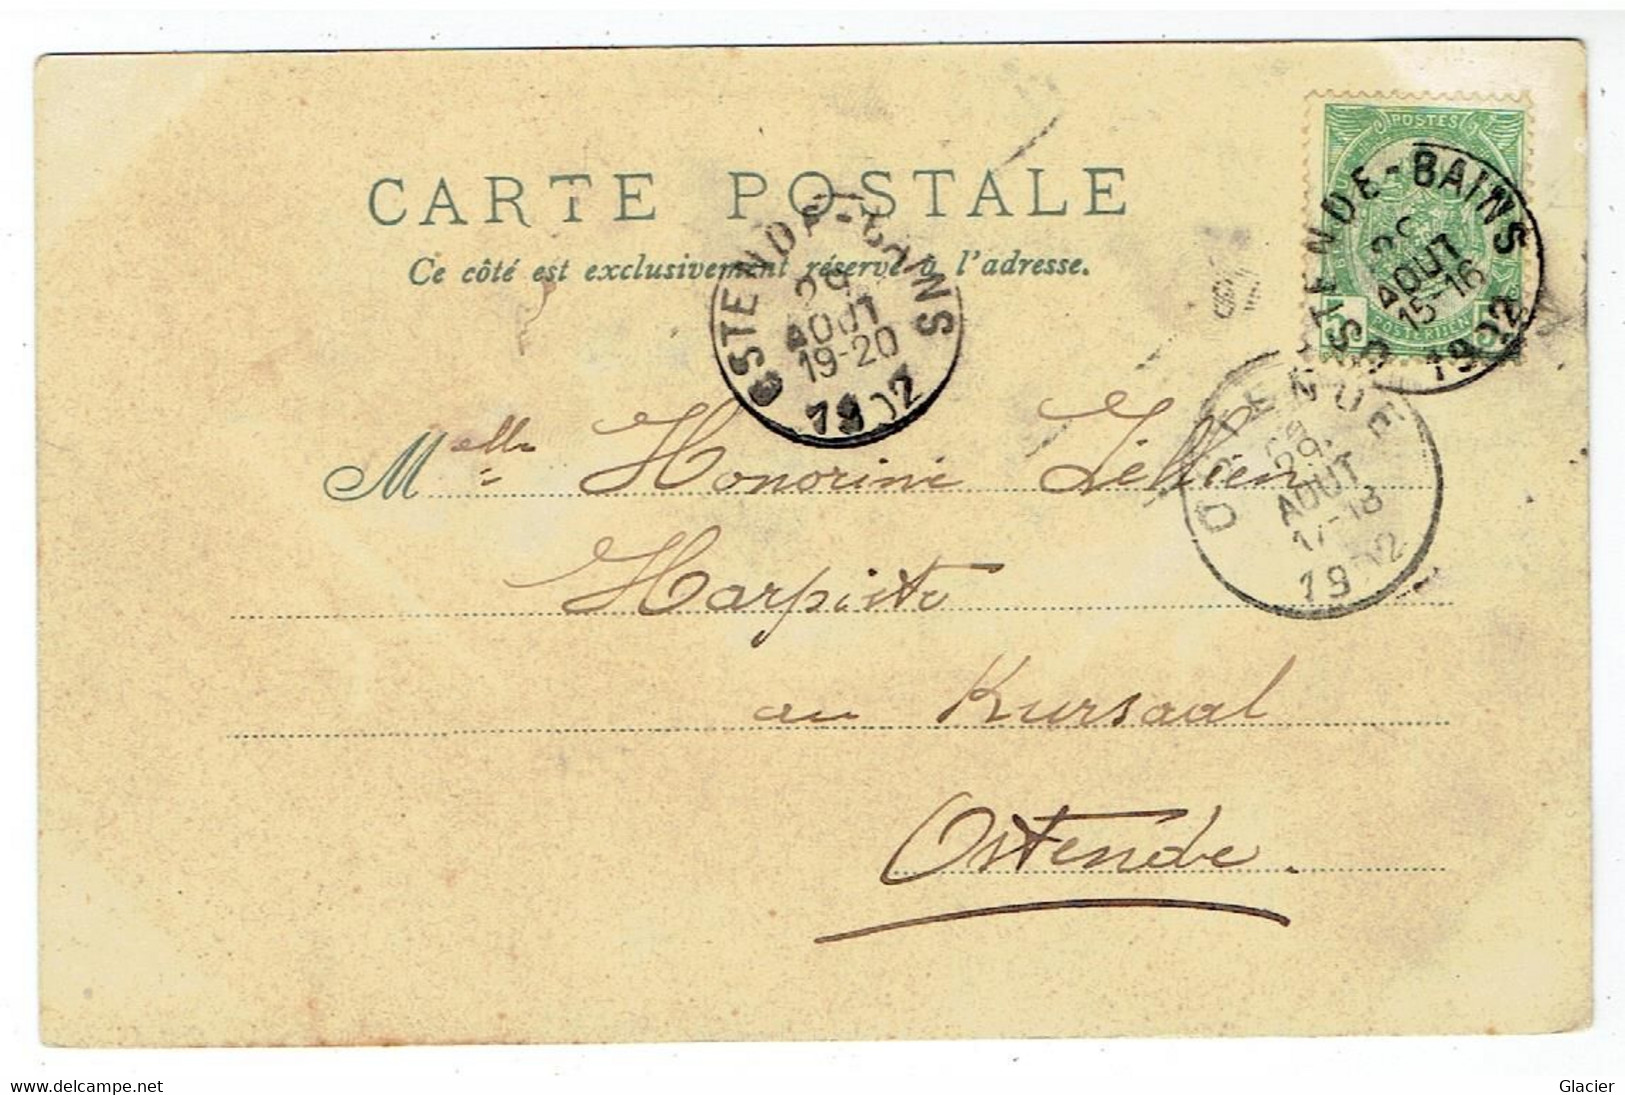 CARTE POSTALE
Ce côté est exclusivement réservé à l'adresse.
POSTES
5
POSTERIJEN
OSTENDE-BAINS
AOUT
15-16
1902
OSTENDE-BAINS
29
AOUT
19-20
1902
29
AOUT
17-18
1902
Melle Honorine
Harpiste
au Kursaal
Ostende.
www.delcampe.net
Glacier